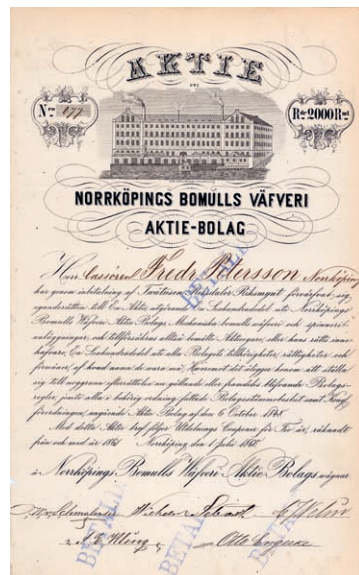 AKTIE
Nro 177
Rdr 2000 Rmt
NORRKÖPINGS BOMULLS VÄFVERI
AKTIE-BOLAG
Herr Cassören Fredr. Petersson Norrköping
har genom inbetalning af Riksdaler Riksmynt förvärfvat sig
eganderätten till En Aktie utgörande Ett Norrköpings
Bomulls Väfveri Aktie Bolags Mekaniska bomulls väfveri och spinneri
anläggningar, och tillförsäkras alltså bemälte Aktieegare, eller hans rätta inne-
hafvare, En af alla Bolagets tillhörigheter, rättigheter och
förmåner, af hvad namn de vara må; Hvaremot det åligger honom att ställa
sig till noggrann efterrättelse nu gällande eller framdeles Bolags-
regler, jemte alla i behörig ordning fattade Bolagsstämmobeslut samt Kongl.
förordningen, angående Aktie Bolag af den 6 October 1848.
Med detta Aktie bref följer Utdelnings Couponer för Tio år, räknadt
från och med år 1861 Norrköping den 1 Julii
å Norrköpings Bomulls Väfveri Aktie Bolags vägnar
BETALD
BETALD
BETALD